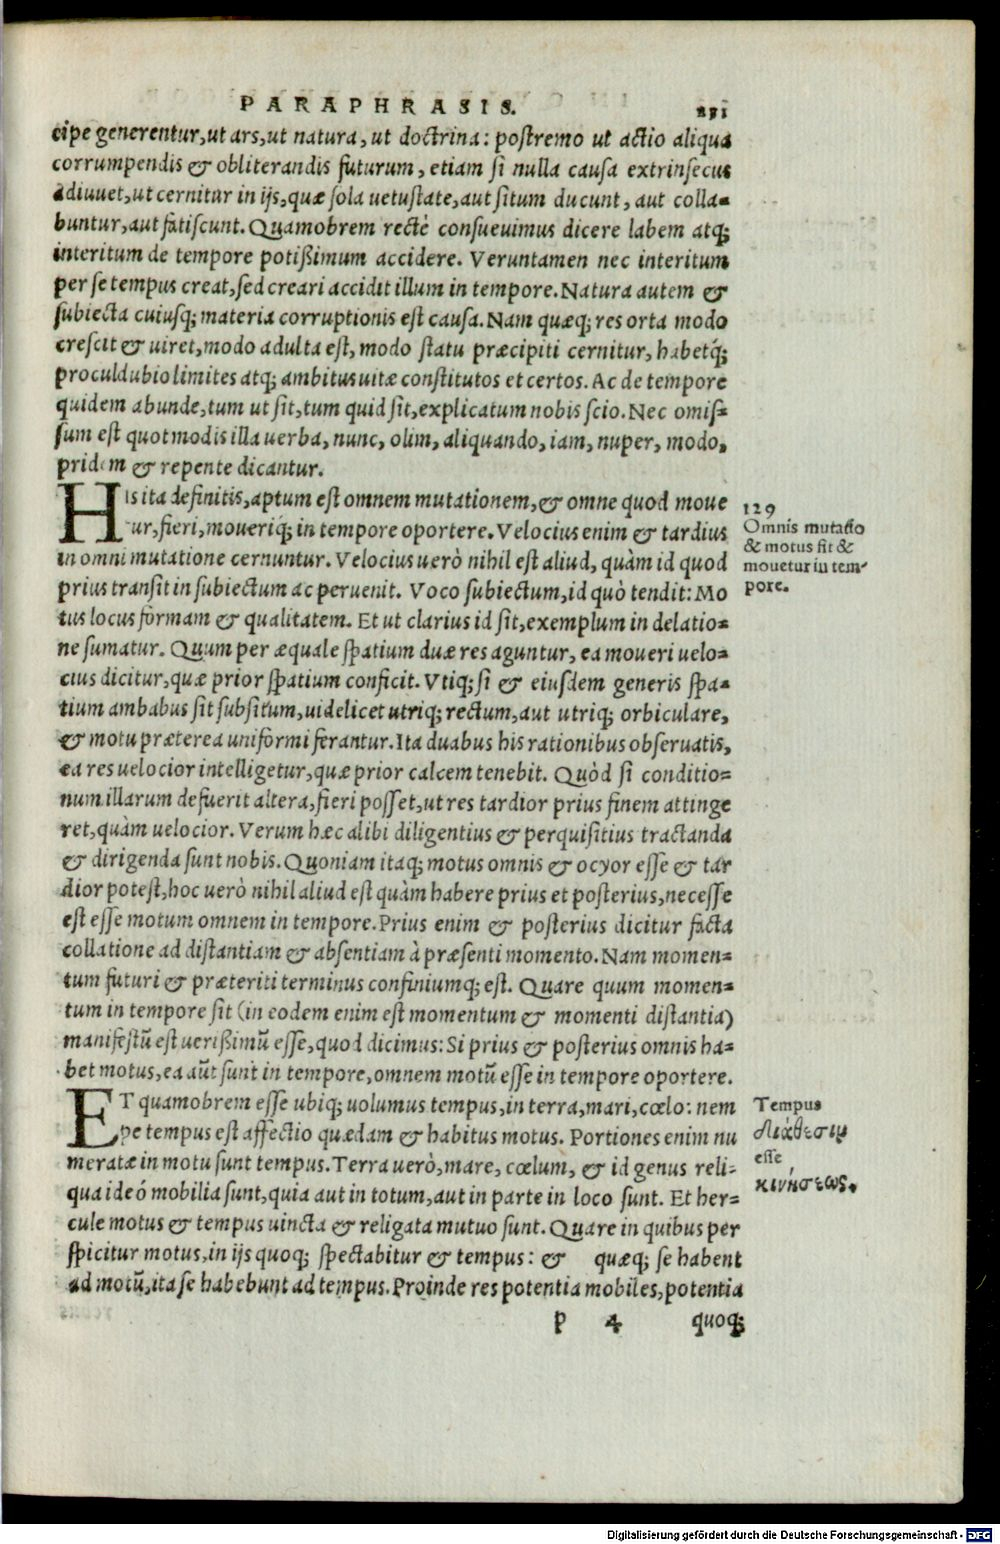 PARAPHRASIS. 231
cipe generentur, ut ars, ut natura, ut doctrina: postremo ut actio aliqua
corrumpendis & obliterandis futurum, etiam si nulla causa extrinsecus
adiuuet, ut cernitur in ijs, quæ sola uetustate, aut situm ducunt, aut colla=
buntur, aut fatiscunt. Quamobrem rectè consueuimus dicere labem atq;
interitum de tempore potißimum accidere. Veruntamen nec interitum
per se tempus creat, sed creari accidit illum in tempore. Natura autem &
subiecta cuiusq; materia corruptionis est causa. Nam quæq; res orta modo
crescit & uiret, modo adulta est, modo statu præcipiti cernitur, habetq́;
proculdubio limites atq; ambitus uitæ constitutos et certos. Ac de tempore
quidem abunde, tum ut sit, tum quid sit, explicatum nobis scio. Nec omis=
sum est quot modis illa uerba, nunc, olim, aliquando, iam, nuper, modo,
pridem & repente dicantur.
HIs ita definitis, aptum est omnem mutationem, & omne quod moue
ur, fieri, moueriq́; in tempore oportere. Velocius enim & tardius
in omni mutatione cernuntur. Velocius uerò nihil est aliud, quàm id quod
prius transit in subiectum ac peruenit. Voco subiectum, id quò tendit: Mo
tus locus formam & qualitatem. Et ut clarius id sit, exemplum in delatio=
ne sumatur. Quum per æquale spatium duæ res aguntur, ea moueri uelo=
cius dicitur, quæ prior spatium conficit. Vtiq; si & eiusdem generis spa=
tium ambabus sit subsitum, uidelicet utriq; rectum, aut utriq; orbiculare,
& motu præterea uniformi ferantur. Ita duabus his rationibus obseruatis,
ea res uelocior intelligetur, quæ prior calcem tenebit. Quòd si conditio=
num illarum defuerit altera, fieri posset, ut res tardior prius finem attinge
ret, quàm uelocior. Verum hæc alibi diligentius & perquisitius tractanda
& dirigenda sunt nobis. Quoniam itaq; motus omnis & ocyor esse & tar
dior potest, hoc uerò nihil aliud est quàm habere prius et posterius, necesse
est esse motum omnem in tempore. Prius enim & posterius dicitur facta
collatione ad distantiam & absentiam à præsenti momento. Nam momen=
tum futuri & præteriti terminus confiniumq; est. Quare quum momen=
tum in tempore sit (in eodem enim est momentum & momenti distantia)
manifestũ est uerißimũ esse, quod dicimus: Si prius & posterius omnis ha=
bet motus, ea aũt sunt in tempore, omnem motũ esse in tempore oportere.
ET quamobrem esse ubiq; uolumus tempus, in terra, mari, cœlo: nem
pe tempus est affectio quædam & habitus motus. Portiones enim nu
meratæ in motu sunt tempus. Terra uerò, mare, cœlum, & id genus reli=
qua ideo mobilia sunt, quia aut in totum, aut in parte in loco sunt. Et her=
cule motus & tempus uincta & religata mutuo sunt. Quare in quibus per
spicitur motus, in ijs quoq; spectabitur & tempus: & quæq; se habent
ad motũ, ita se habebunt ad tempus. Proinde res potentia mobiles, potentia
p 4 quoq;
129
Omnis mutatio
& motus fit &
mouetur in tem-
pore.
Tempus
διάθεσιν
esse
κινήσεως.
Digitalisierung gefördert durch die Deutsche Forschungsgemeinschaft - DFG